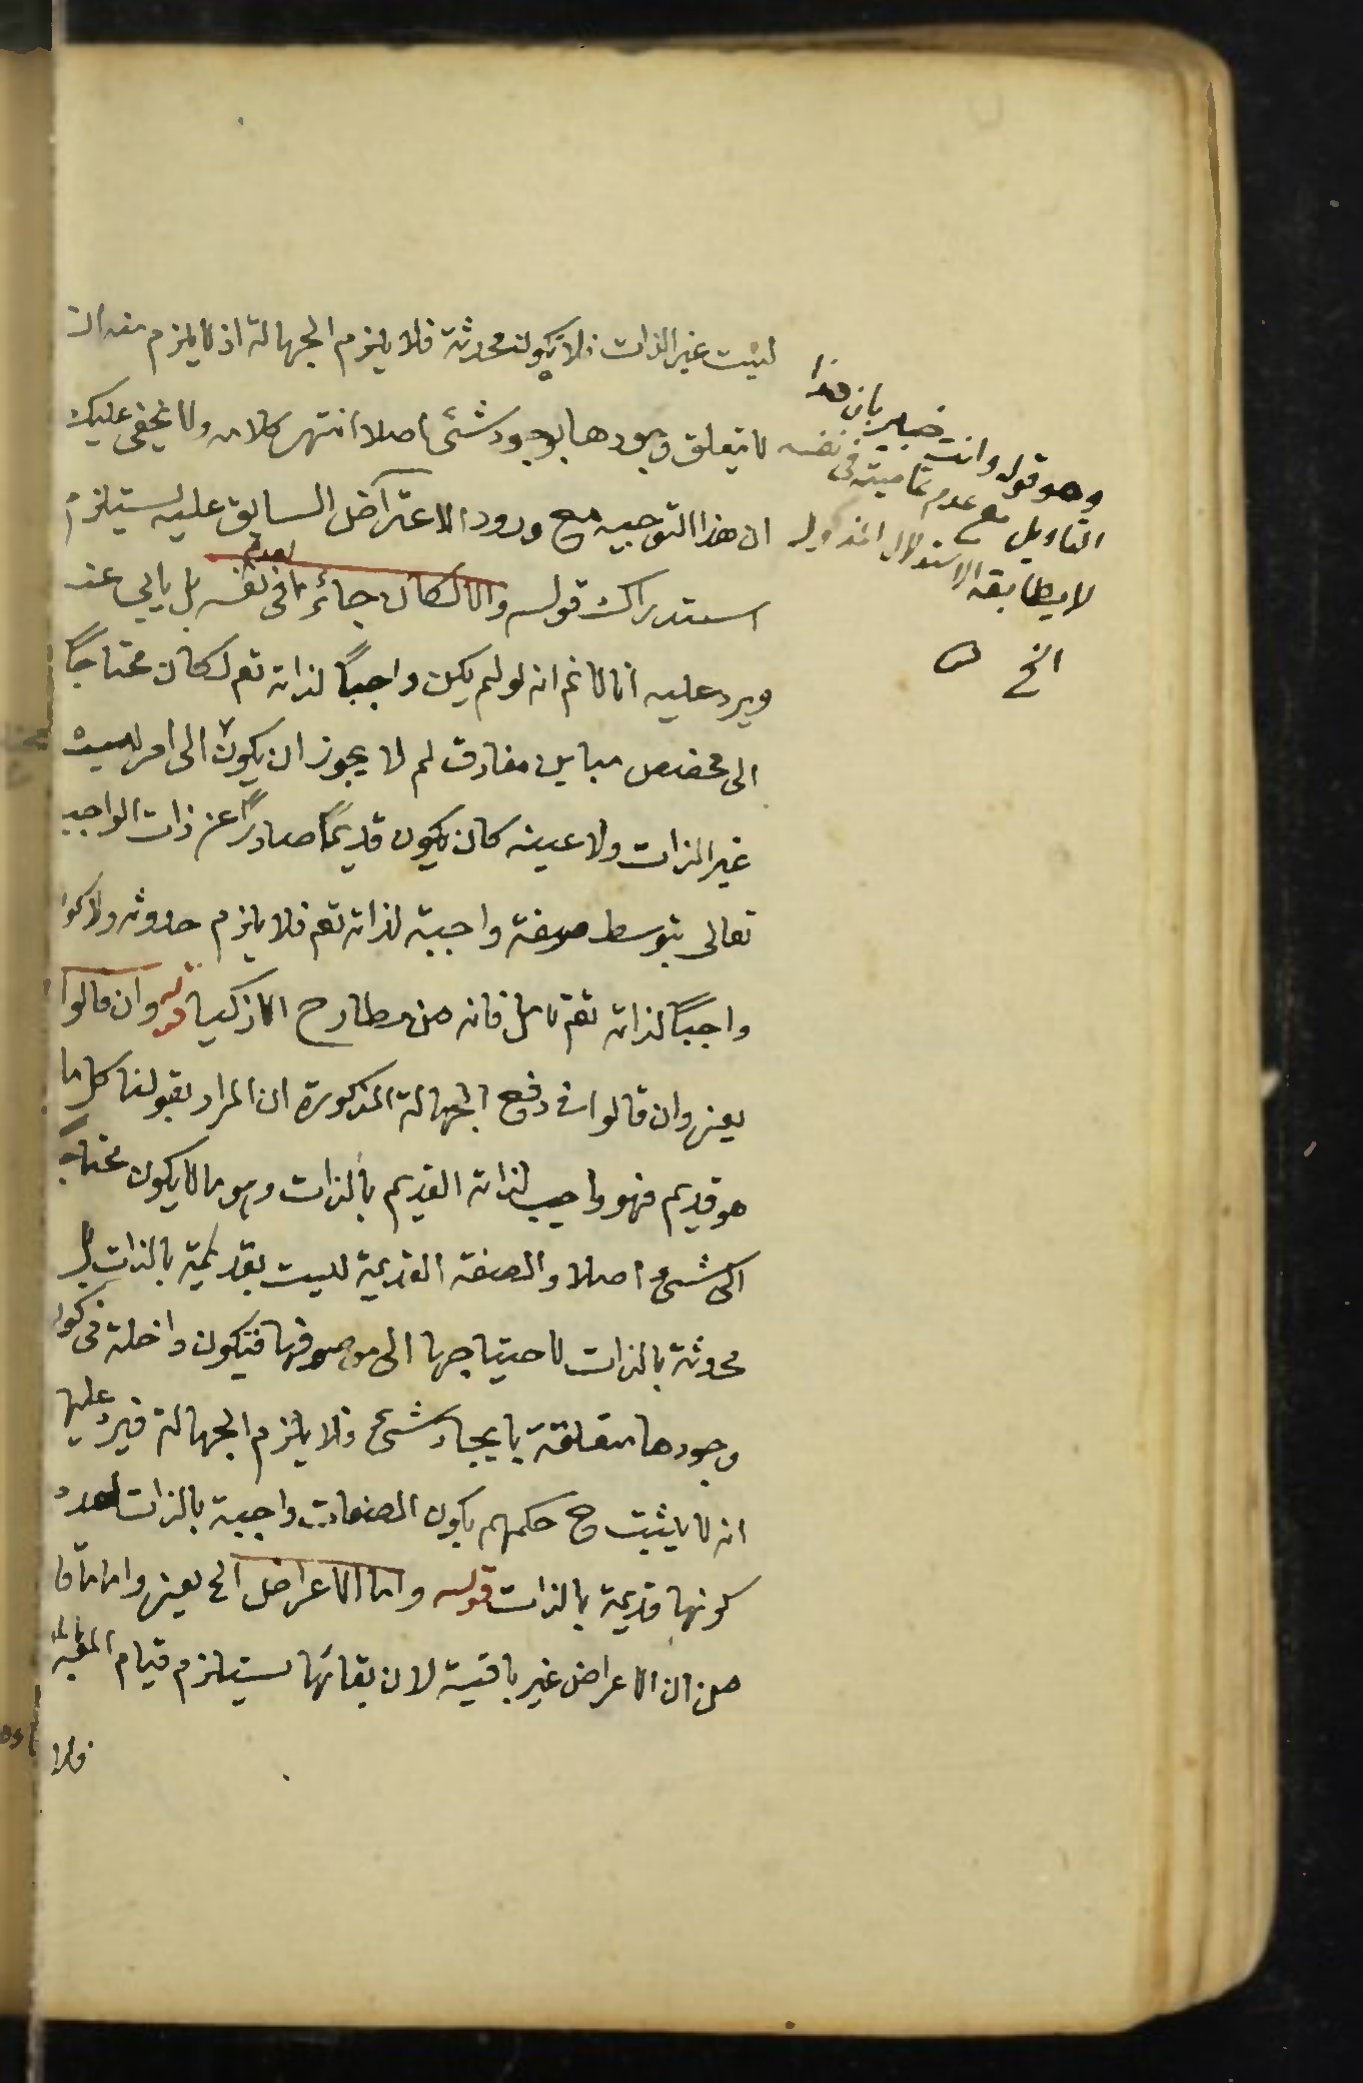 ليست غير الذات فلا يكون محدثة فلا يلزم الجهالة اذ لا يلزم منه ان
لا يتعلق وجودها بوجود شئ اصلا انتهى كلامه ولا يخفى عليك
ان هذا التوجيه مع ورود الاعتراض السابق عليه يستلزم
استدراك قوله والا لكان جائز العدم فى نفسه بل يابى عنه
ويرد عليه انا لا نم انه لو لم يكن واجباً لذاته تعم لكان محتاجاً
الى مخصص مباين مفارق لم لا يجوز ان يكون الى امر ليست
غير الذات ولا عينه كان يكون قديماً صادراً عن ذات الواجب
تعالى بتوسط صفة واجبة لذاته تعم فلا يلزم حدوثه ولا كونه
واجباً لذاته تعم تامل فانه من مطارح الاذكيا قوله وان قالوا
يعنى وان قالوا فى دفع الجهالة المذكورة ان المراد بقولنا كل ما
هو قديم فهو واجب لذاته القديم بالذات وهو ما لا يكون محتاجاً
الى شئ اصلا والصفة القديمة ليست بقديمة بالذات بل
محدثة بالذات لاحتياجها الى موصوفها فتكون داخلة فى كون
وجودها متعلقة بايجاد شئ فلا يلزم الجهالة فيرد عليها
انه لا يثبت ح حكمهم بكون الصفات واجبة بالذات لعدم
كونها قديمة بالذات قوله واما الاعراض الخ يعنى واما ما قا
من ان الاعراض غير باقية لان بقائها يستلزم قيام
فلا
وهو قوله وانت خبير بان هذا
التاويل مع عدم تماميته فى نفسه
لا يطابقه الاستدلال المذكور
الخ